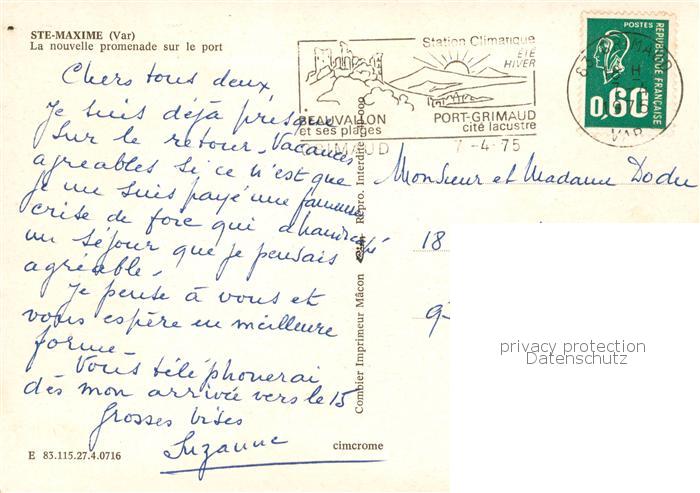 STE-MAXIME (Var)
La nouvelle promenade sur le port
Chers tous deux
Je suis déjà presque
sur le retour. Vacances
agréables si ce n'est que
je me suis payé une fameuse
crise de foie qui a handicapé
un séjour que je pensais
agréable.
Je pense à vous et
vous espère en meilleure
forme.
Vous téléphonerai
dès mon arrivée vers le 15
Grosses bises
Suzanne
E 83.115.27.4.0716
cimcrome
Combier Imprimeur Mâcon
Repro. Interdite
Station Climatique
ÉTÉ
HIVER
BEAUVALLON
et ses plages
PORT-GRIMAUD
cité lacustre
GRIMAUD
7-4-75
POSTES
REPUBLIQUE FRANÇAISE
0,60
VAR
Monsieur et Madame Dodu
18
9
privacy protection
Datenschutz